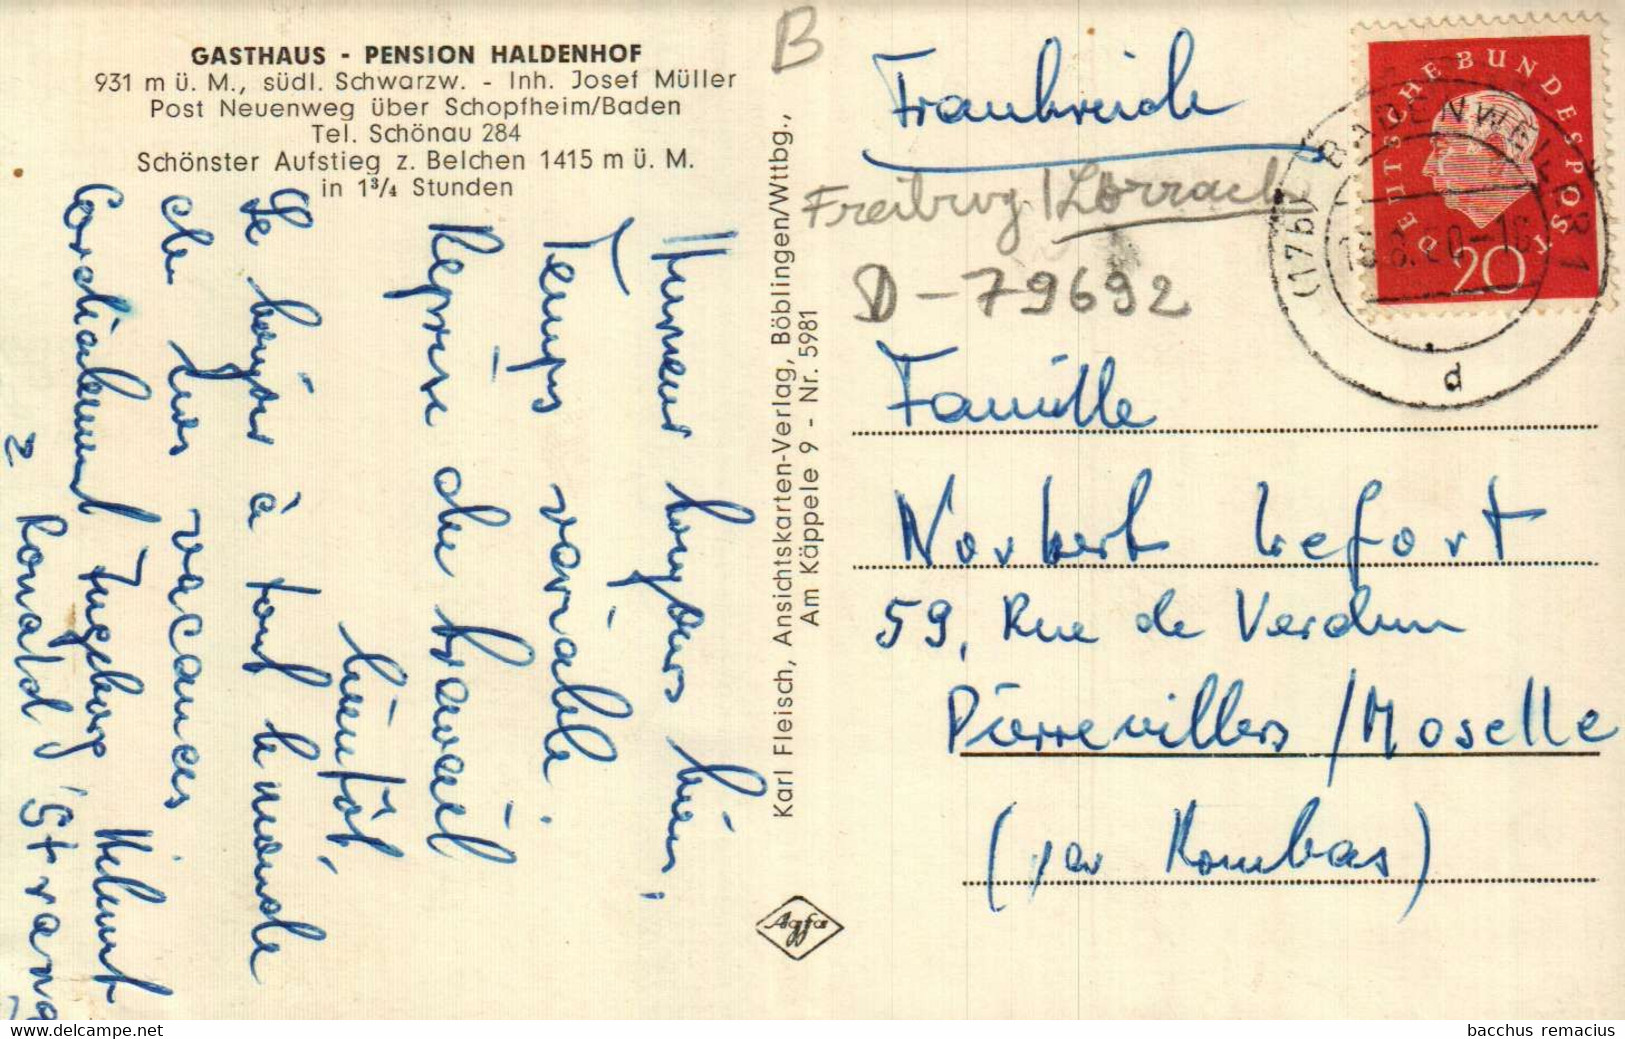 GASTHAUS - PENSION HALDENHOF
931 m ü. M., südl. Schwarzw. - Inh. Josef Müller
Post Neuenweg über Schopfheim/Baden
Tel. Schönau 284
Schönster Aufstieg z. Belchen 1415 m ü. M.
in 1¾ Stunden
Humeur toujours bien,
Temps variable.
Reprise du travail
bientôt.
Le bonjour à tout le monde
de nos vacances
Cordialement Ingeborg Helmut
Ronald Strang
Karl Fleisch, Ansichtskarten-Verlag, Böblingen/Wttbg.,
Am Käppele 9 - Nr. 5981
Agfa
B
Frankreich
Freiburg / Lörrach
D-79692
Famille
Norbert Lefort
59, Rue de Verdun
Pierrevillers / Moselle
(par Rombas)
DEUTSCHE BUNDESPOST
20
(17b) BADENWEILER 1
d
bacchus remacius